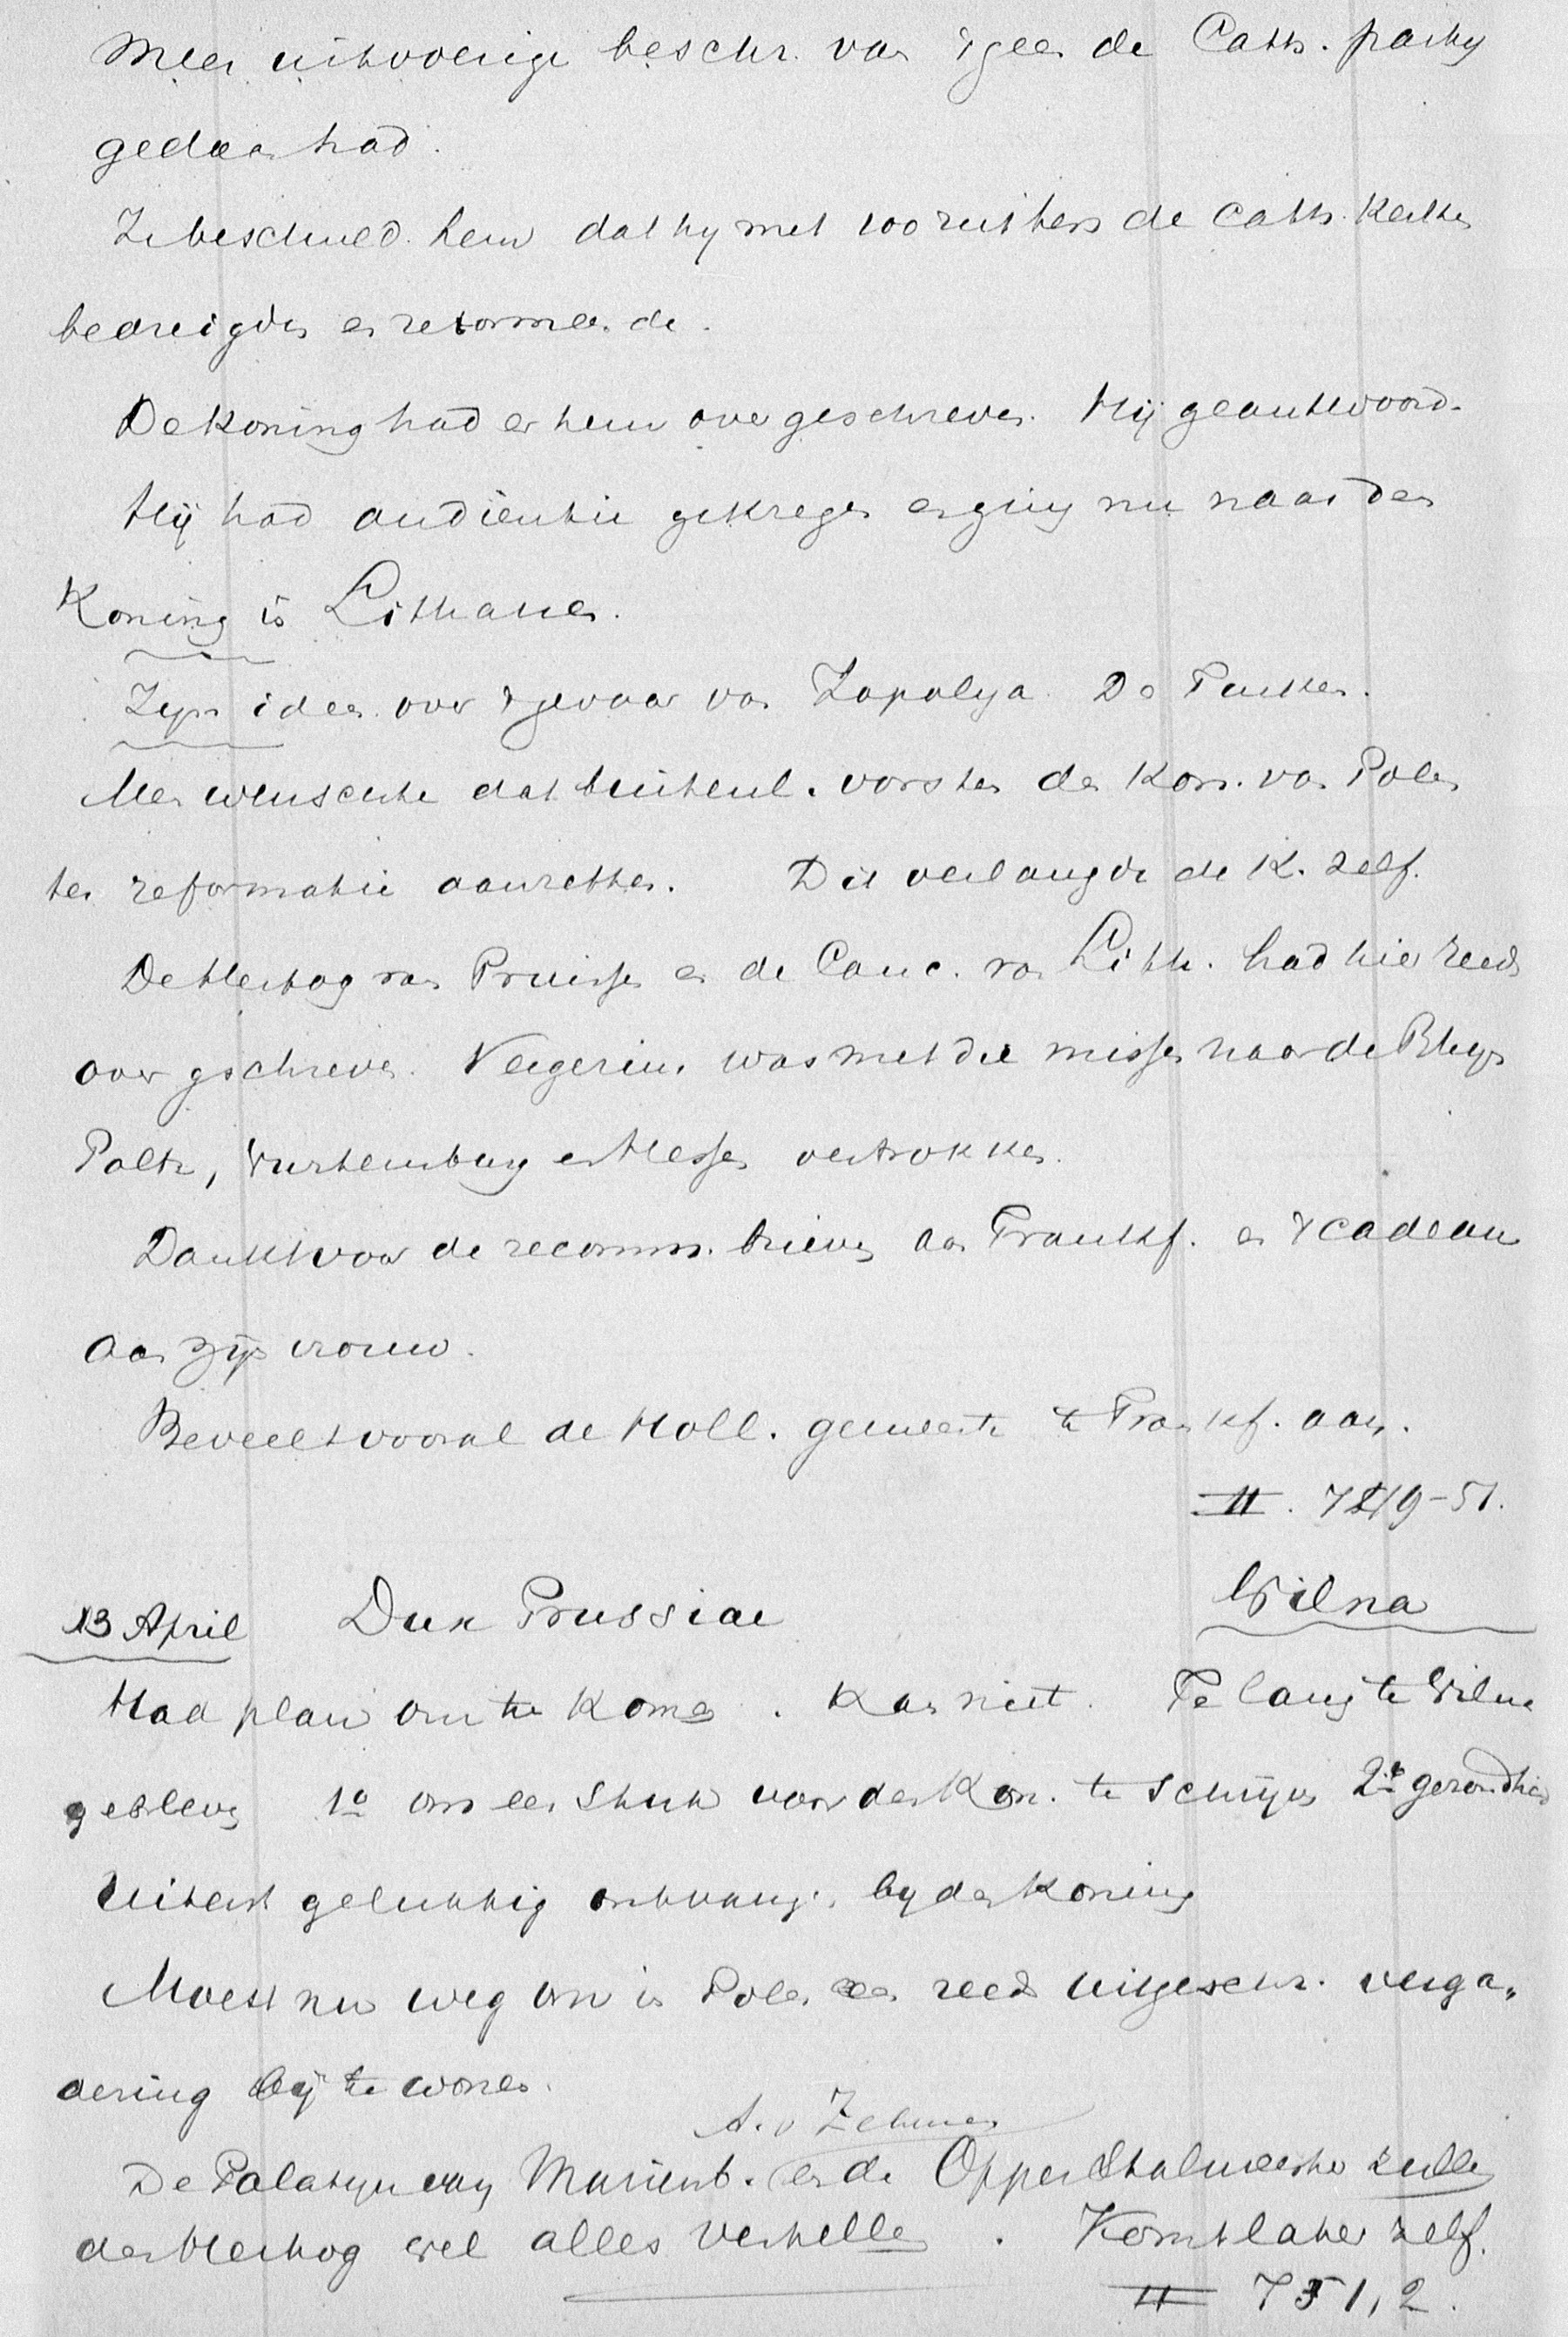 Meer uitvoerige beschr. van 'tgeen de Cath. party
gedaan had.
Ze beschuld. hem dat hy met 100 ruiters de Cath. kerken
bedreigden en reformeerde.
De Koning had er hem over geschreven. Hij geantwoord.
Hij had audientie gekregen en ging nu naar den
Koning in Litthauen.
Zyn idee over 't gevaar van Zapolya. De Turken.
Men wenschte dat buitenl. vorsten den Kon. van Polen
ter reformatie aanzetten. Dit verlangde de K. zelf.
De Hertog van Pruissen en de Canc. van Litth. had hier reeds
over geschreven. Vergerius was met die missen naar de Rhyn
Paltz, Wurtemburg en Hessen vertrokken.
Dankt voor de recomm. brieven aan Frankf. en 't cadeau
aan zijn vrouw.
Beveelt vooral de Holl. gemeente te Frankf. aan.
II. 749-51.
13 April Dux Prussiae Wilna
Had plan om te komen. Kan niet. Te lang te Wilna
gebleven 1o om een stuk voor den Kon. te schrijven 2e gezondheid
Uiterst gelukkig ontvang. by den Koning
Moest nu weg om in Polen een reeds uitgeschr. verga„
dering bij te wonen.
A. v Zehmen
De Palatyn van Marienb. en de Opperstalmeester zullen
den Hertog wel alles vertellen. Komt later zelf.
II 751,2.